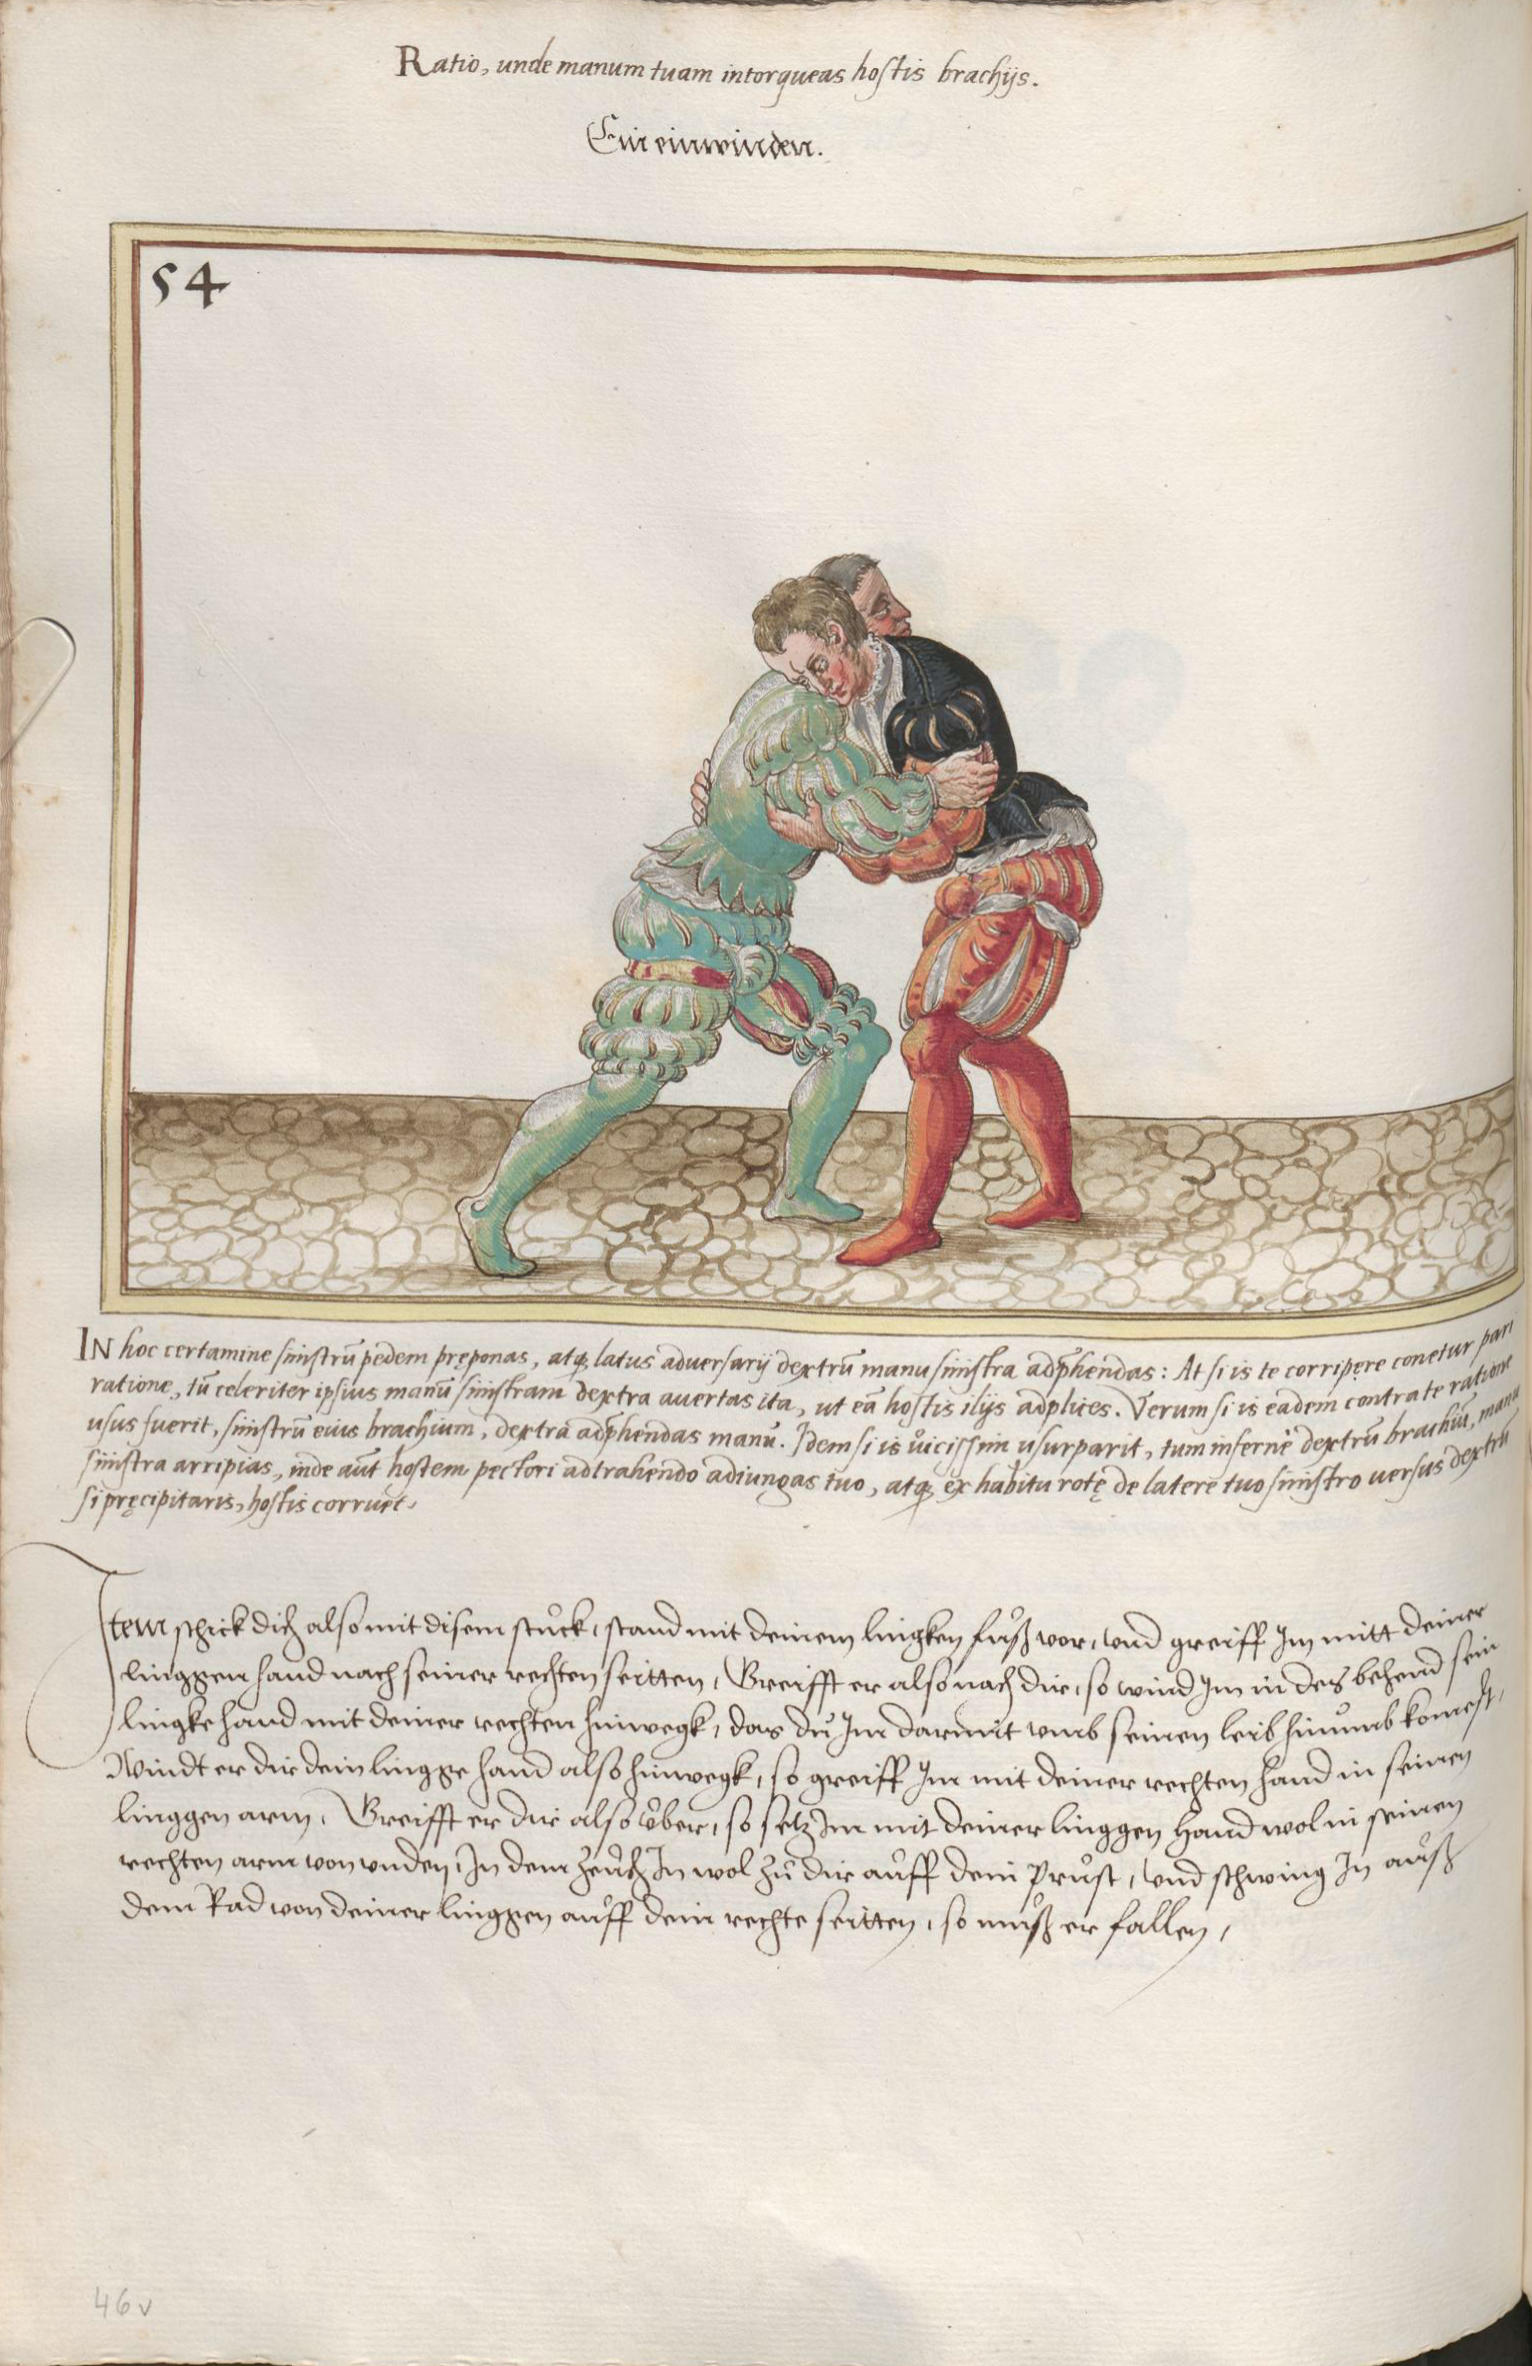 Ratio, unde manum tuam intorqueas hostis brachijs.
Ein einwinden.
54
IN hoc certamine sinistrū pedem pręponas, atq; latus adversarij dextrū manu sinistra adp̄hendas: At si is te corripęre conetur pari
ratione, tū celeriter ipsius manū sinistram dextra avertas ita, ut eā hostis ilijs adplices. Verum si is eadem contra te ratione
usus fuerit, sinistrū eius brachium, dextra adp̄hendas manū. Idem si is vicissim usurparit, tum infernè dextrū brachiū, manu
sinistra arripias, inde aūt hostem pectori adtrahendo adiungas tuo, atq; ex habitu rotę de latere tuo sinistro versus dextrū
si pręcipitaris, hostis corruet.
Item schick dich also mit disem stuͦck, stand mit deinem lingken fuͦß vor, vnd greiff Im mitt deiner
linggen hand nach seiner rechten seitten, Greifft er also nach dir, so wind Im in des behend sein
lingke hand mit deiner rechten hinwegk, das du Im darmit vmb seinen leib hinumb komest,
Windt er dir dein lingge hand also hinwegk, so greiff Im mit deiner rechten hand in seinen
linggen arm, Greifft er dir also vͦber, so setz Im mit deiner linggen hand wol in seinen
rechten arm von vnden, In dem zeuͦch In wol zuͦ dir auͦff dein Pruͦst, vnd schwing In auͦß
dem Rad von deiner linggen auͦff dein rechte seitten, so muͦß er fallen,
46v